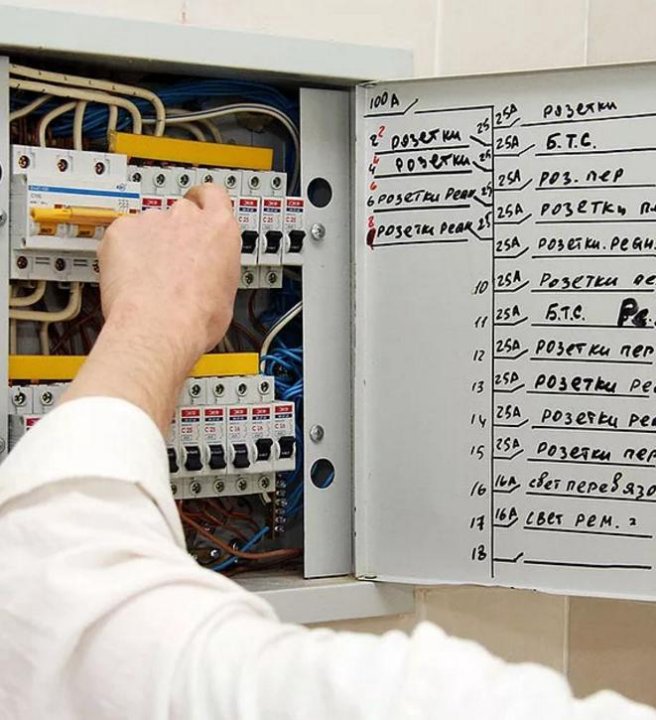 100А
2 2 розетки 25
4 розетки 25
6 розетки Реан 25
розетки Реан 25
25А розетки
25А Б.Т.С.
25А роз. пер
25А розетки
25А розетки. Реан.
10 25А Розетки
11 25А Б.Т.С.
12 25А розетки пер
13 25А розетки
14 25А розетки
15 25А розетки пер
16 16А свет перевязо
17 16А свет рем. 2
18
C 25
C 25
C 25
C 25
C 25
C 16
C 16